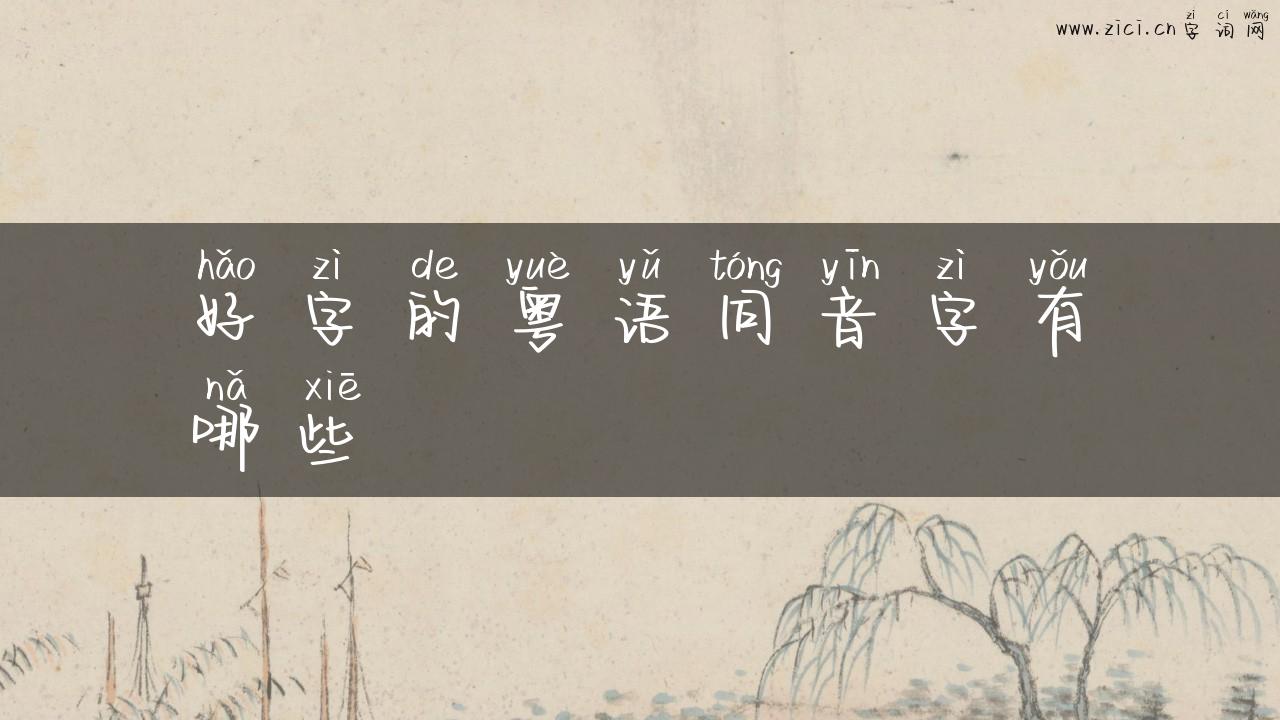 zì cí wǎng
www.zici.cn 字词网
hǎo zì de yuè yǔ tóng yīn zì yǒu
好字的粤语同音字有
nǎ xiē
哪些